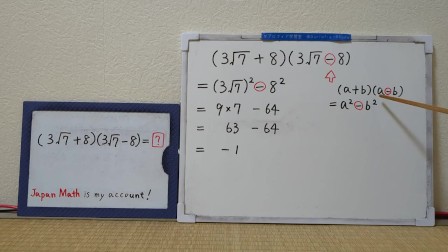 (3√7+8)(3√7-8)= ?
Japan Math is my account!
(3√7+8)(3√7-8)
=(3√7)²-8²
= 9×7 -64
= 63 -64
= -1
(a+b)(a-b)
=a²-b²